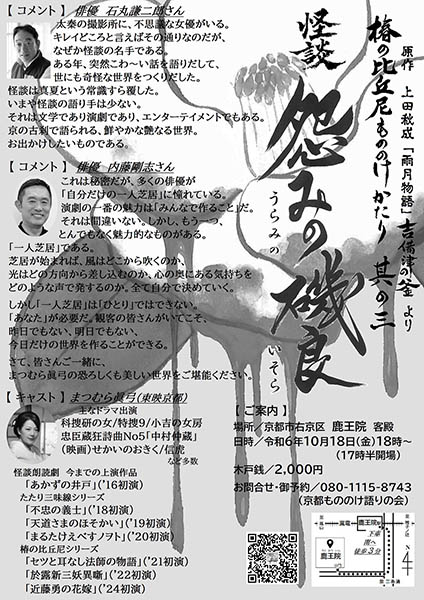 【 コメント 】 俳優　石丸謙二郎さん
太秦の撮影所に、不思議な女優がいる。
キレイどころと言えばその通りなのだが、
なぜか怪談の名手である。
ある年、突然こわ～い話を語りだして、
世にも奇怪な世界をつくりだした。
怪談は真夏という常識すら覆した。
いまや怪談の語り手は少ない。
それは文学であり演劇であり、エンターテイメントでもある。
京の古刹で語られる、鮮やかな艶なる世界。
お出かけしたいものである。
【 コメント 】 俳優　内藤剛志さん
これは秘密だが、多くの俳優が
「自分だけの一人芝居」に憧れている。
演劇の一番の魅力は「みんなで作ること」だ。
それは間違いない、しかし、もう一つ、
とんでもなく魅力的なものがある。
「一人芝居」である。
芝居が始まれば、風はどこから吹くのか、
光はどの方向から差し込むのか、心の奥にある気持ちを
どのような声で発するのか。全て自分で決めていく。
しかし「一人芝居」は「ひとり」ではできない。
「あなた」が必要だ。観客の皆さんがいてこそ、
昨日でもない、明日でもない、
今日だけの世界を作ることができる。
さて、皆さんご一緒に、
まつむら眞弓の恐ろしくも美しい世界をご堪能ください。
【 キャスト 】 まつむら眞弓（東映京都）
主なドラマ出演
科捜研の女/特捜9/小吉の女房
忠臣蔵狂詩曲No5「中村仲蔵」
（映画）せかいのおきく/信虎
など多数
怪談朗読劇　今までの上演作品
「あかずの井戸」（'16初演）
たたり三味線シリーズ
「不忠の義士」（'18初演）
「天道さまのほそかい」（'19初演）
「まるたけえべすノフト」（'20初演）
椿の比丘尼シリーズ
「セツと耳なし法師の物語」（'21初演）
「於露新三妖異噺」（'22初演）
「近藤勇の花嫁」（'24初演）
原作　上田秋成「雨月物語」吉備津の釜 より
椿の比丘尼もののけかたり　其の三
怪談
怨みの磯良
うらみの
いそら
【 ご案内 】
場所／京都市右京区　鹿王院 客殿
日時／令和6年10月18日(金)18時～
（17時半開場）
木戸銭／2,000円
お問合せ・御予約／080-1115-8743
（京都もののけ語りの会）
嵐電
鹿王院
下車
南へ
徒歩3分
鹿王院
N
三条通